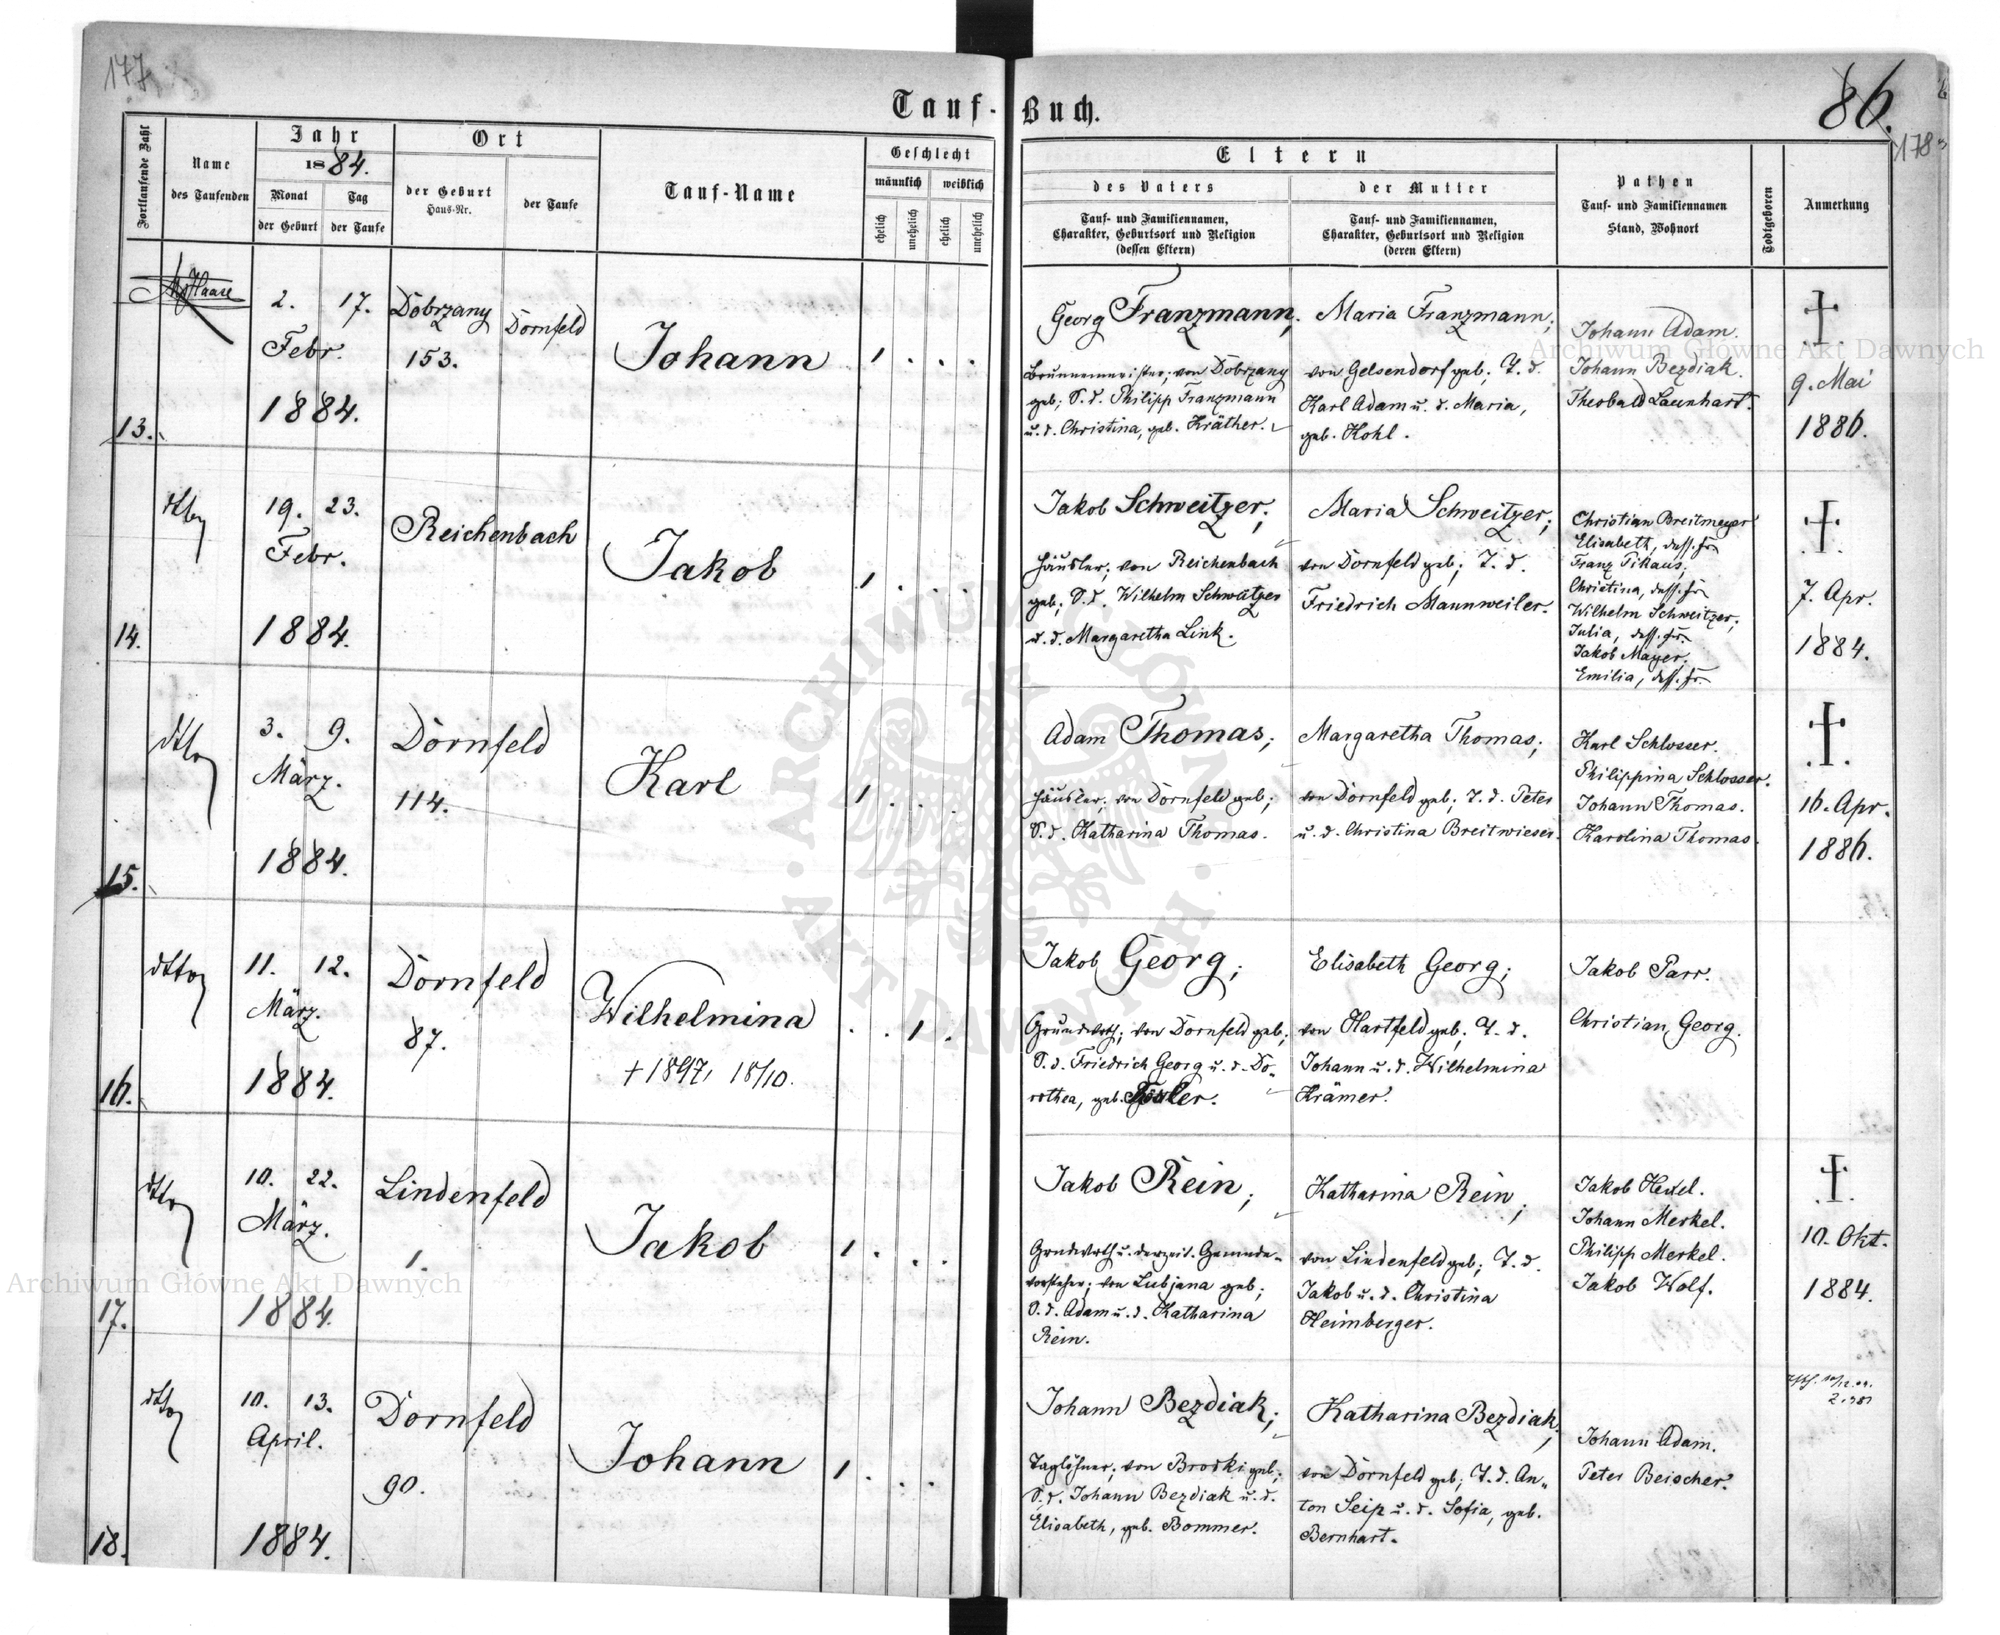 177
Tauf-Buch.
86.
178
Fortlaufende Zahl
Name
des Taufenden
Jahr
1884.
Monat
Tag
der Geburt
der Taufe
Ort
der Geburt
Haus-Nr.
der Taufe
Tauf-Name
Geschlecht
männlich
weiblich
ehelich
unehelich
ehelich
unehelich
Eltern
des Vaters
Tauf- und Familiennamen,
Charakter, Geburtsort und Religion
(dessen Eltern)
der Mutter
Tauf- und Familiennamen,
Charakter, Geburtsort und Religion
(deren Eltern)
Pathen
Tauf- und Familiennamen
Stand, Wohnort
Todtgeboren
Anmerkung
13.
Haase
2. 17.
Febr.
1884.
Dobrzany
153.
Dornfeld
Johann
1 . . .
Georg Franzmann;
Brunnenmeister; von Dobrzany
geb; S. d. Philipp Franzmann
u. d. Christina, geb. Kräther.
Maria Franzmann;
von Gelsendorf geb; T. d.
Karl Adam u. d. Maria,
geb. Kohl.
Johann Adam.
Johann Bezdiak.
Theobald Launhart.
†
9. Mai
1886.
14.
dtto
19. 23.
Febr.
1884.
Reichenbach
Jakob
1 . . .
Jakob Schweitzer;
Häusler; von Reichenbach
geb; S. d. Wilhelm Schweitzer
u. d. Margaretha Link.
Maria Schweitzer;
von Dornfeld geb; T. d.
Friedrich Mannweiler.
Christian Breitmeyer
Elisabeth, dess. Fr.
Franz Pikaus;
Christina, dess. Fr.
Wilhelm Schweitzer;
Julia, dess. Fr.
Jakob Mayer;
Emilia, dess. Fr.
†
7. Apr.
1884.
15.
dtto
3. 9.
März.
1884.
Dornfeld
114.
Karl
1 . . .
Adam Thomas;
Häusler; von Dornfeld geb;
S. d. Katharina Thomas.
Margaretha Thomas;
von Dornfeld geb; T. d. Peter
u. d. Christina Breitwieser.
Karl Schlosser.
Philippina Schlosser.
Johann Thomas.
Karolina Thomas.
†
16. Apr.
1886.
16.
dtto
11. 12.
März.
1884.
Dornfeld
87.
Wilhelmina
† 1897, 18/10.
. . 1 .
Jakob Georg;
Grundwirth; von Dornfeld geb;
S. d. Friedrich Georg u. d. Do-
rothea, geb.
Elisabeth Georg;
von Hartfeld geb; T. d.
Johann u. d. Wilhelmina
Krämer.
Jakob Parr.
Christian Georg.
17.
dtto
10. 22.
März.
1884.
Lindenfeld
1.
Jakob
1 . . .
Jakob Rein;
Grundwirth u. derzeit. Gemeinde-
vorsteher; von Lubjana geb;
S. d. Adam u. d. Katharina
Rein.
Katharina Rein;
von Lindenfeld geb; T. d.
Jakob u. d. Christina
Heimberger.
Jakob Hexel.
Johann Merkel.
Philipp Merkel.
Jakob Wolf.
†
10. Okt.
1884.
18.
dtto
10. 13.
April.
1884.
Dornfeld
90.
Johann
1 . . .
Johann Bezdiak;
Taglöhner; von Brodki geb;
S. d. Johann Bezdiak u. d.
Elisabeth, geb. Bommer.
Katharina Bezdiak;
von Dornfeld geb; T. d. An-
ton Seip u. d. Sofia, geb.
Bernhart.
Johann Adam.
Peter Beischer.
Archiwum Główne Akt Dawnych
Archiwum Główne Akt Dawnych
· ARCHIWUM GŁÓWNE · AKT DAWNYCH ·